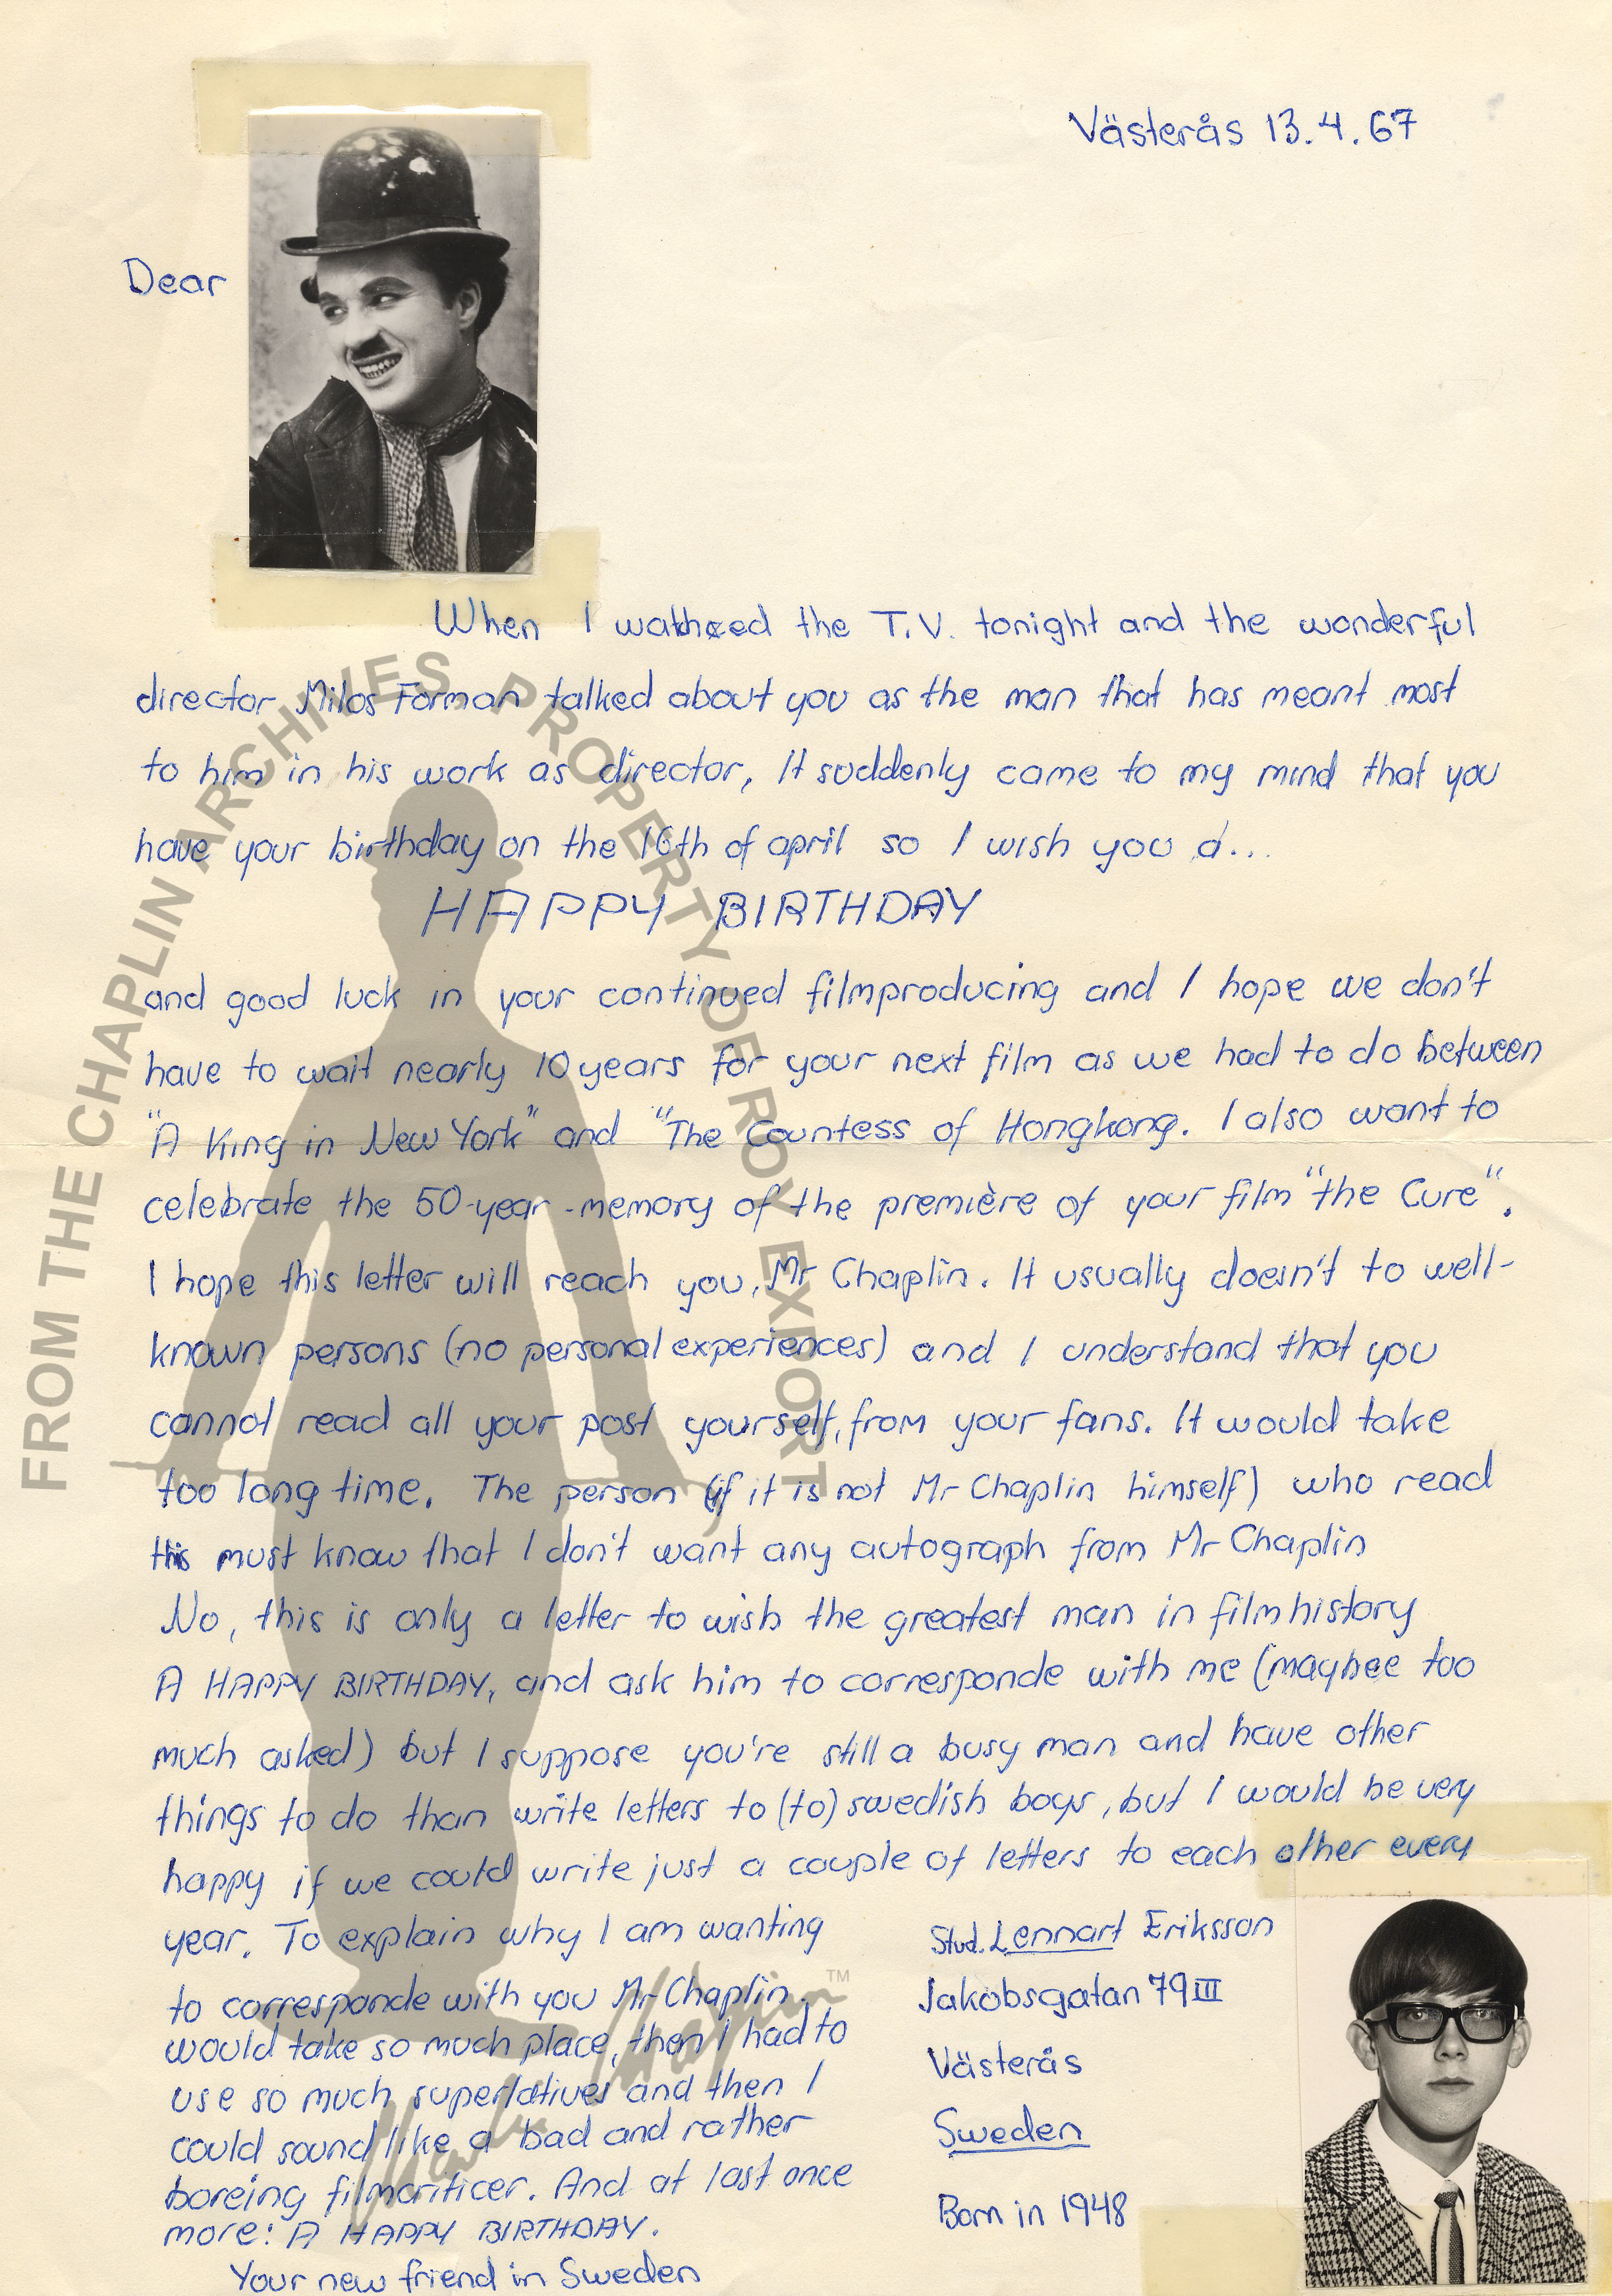 Västerås 13.4.67
Dear
When I wathced the T.V. tonight and the wonderful
director Milos Forman talked about you as the man that has meant most
to him in his work as director, It suddenly came to my mind that you
have your birthday on the 16th of april so I wish you a...
HAPPY BIRTHDAY
and good luck in your continued filmproducing and I hope we don't
have to wait nearly 10 years for your next film as we had to do between
"A King in New York" and "The Countess of Hongkong. I also want to
celebrate the 50-year-memory of the première of your film "the Cure".
I hope this letter will reach you, Mr Chaplin. It usually doesn't to well-
known persons (no personal experiences) and I understand that you
cannot read all your post yourself, from your fans. It would take
too long time. The person (if it is not Mr Chaplin himself) who read
this must know that I don't want any autograph from Mr Chaplin
No, this is only a letter to wish the greatest man in filmhistory
A HAPPY BIRTHDAY, and ask him to corresponde with me (maybee too
much asked) but I suppose you're still a busy man and have other
things to do than write letters to (to) swedish boys, but I would be very
happy if we could write just a couple of letters to each other every
year. To explain why I am wanting
to corresponde with you Mr Chaplin
would take so much place, then I had to
use so much superlatives and then I
could sound like a bad and rather
boreing filmcriticer. And at last once
more: A HAPPY BIRTHDAY.
Your new friend in Sweden
Stud. Lennart Eriksson
Jakobsgatan 79 III
Västerås
Sweden
Born in 1948
FROM THE CHAPLIN ARCHIVES, PROPERTY OF ROY EXPORT
Charlie Chaplin™